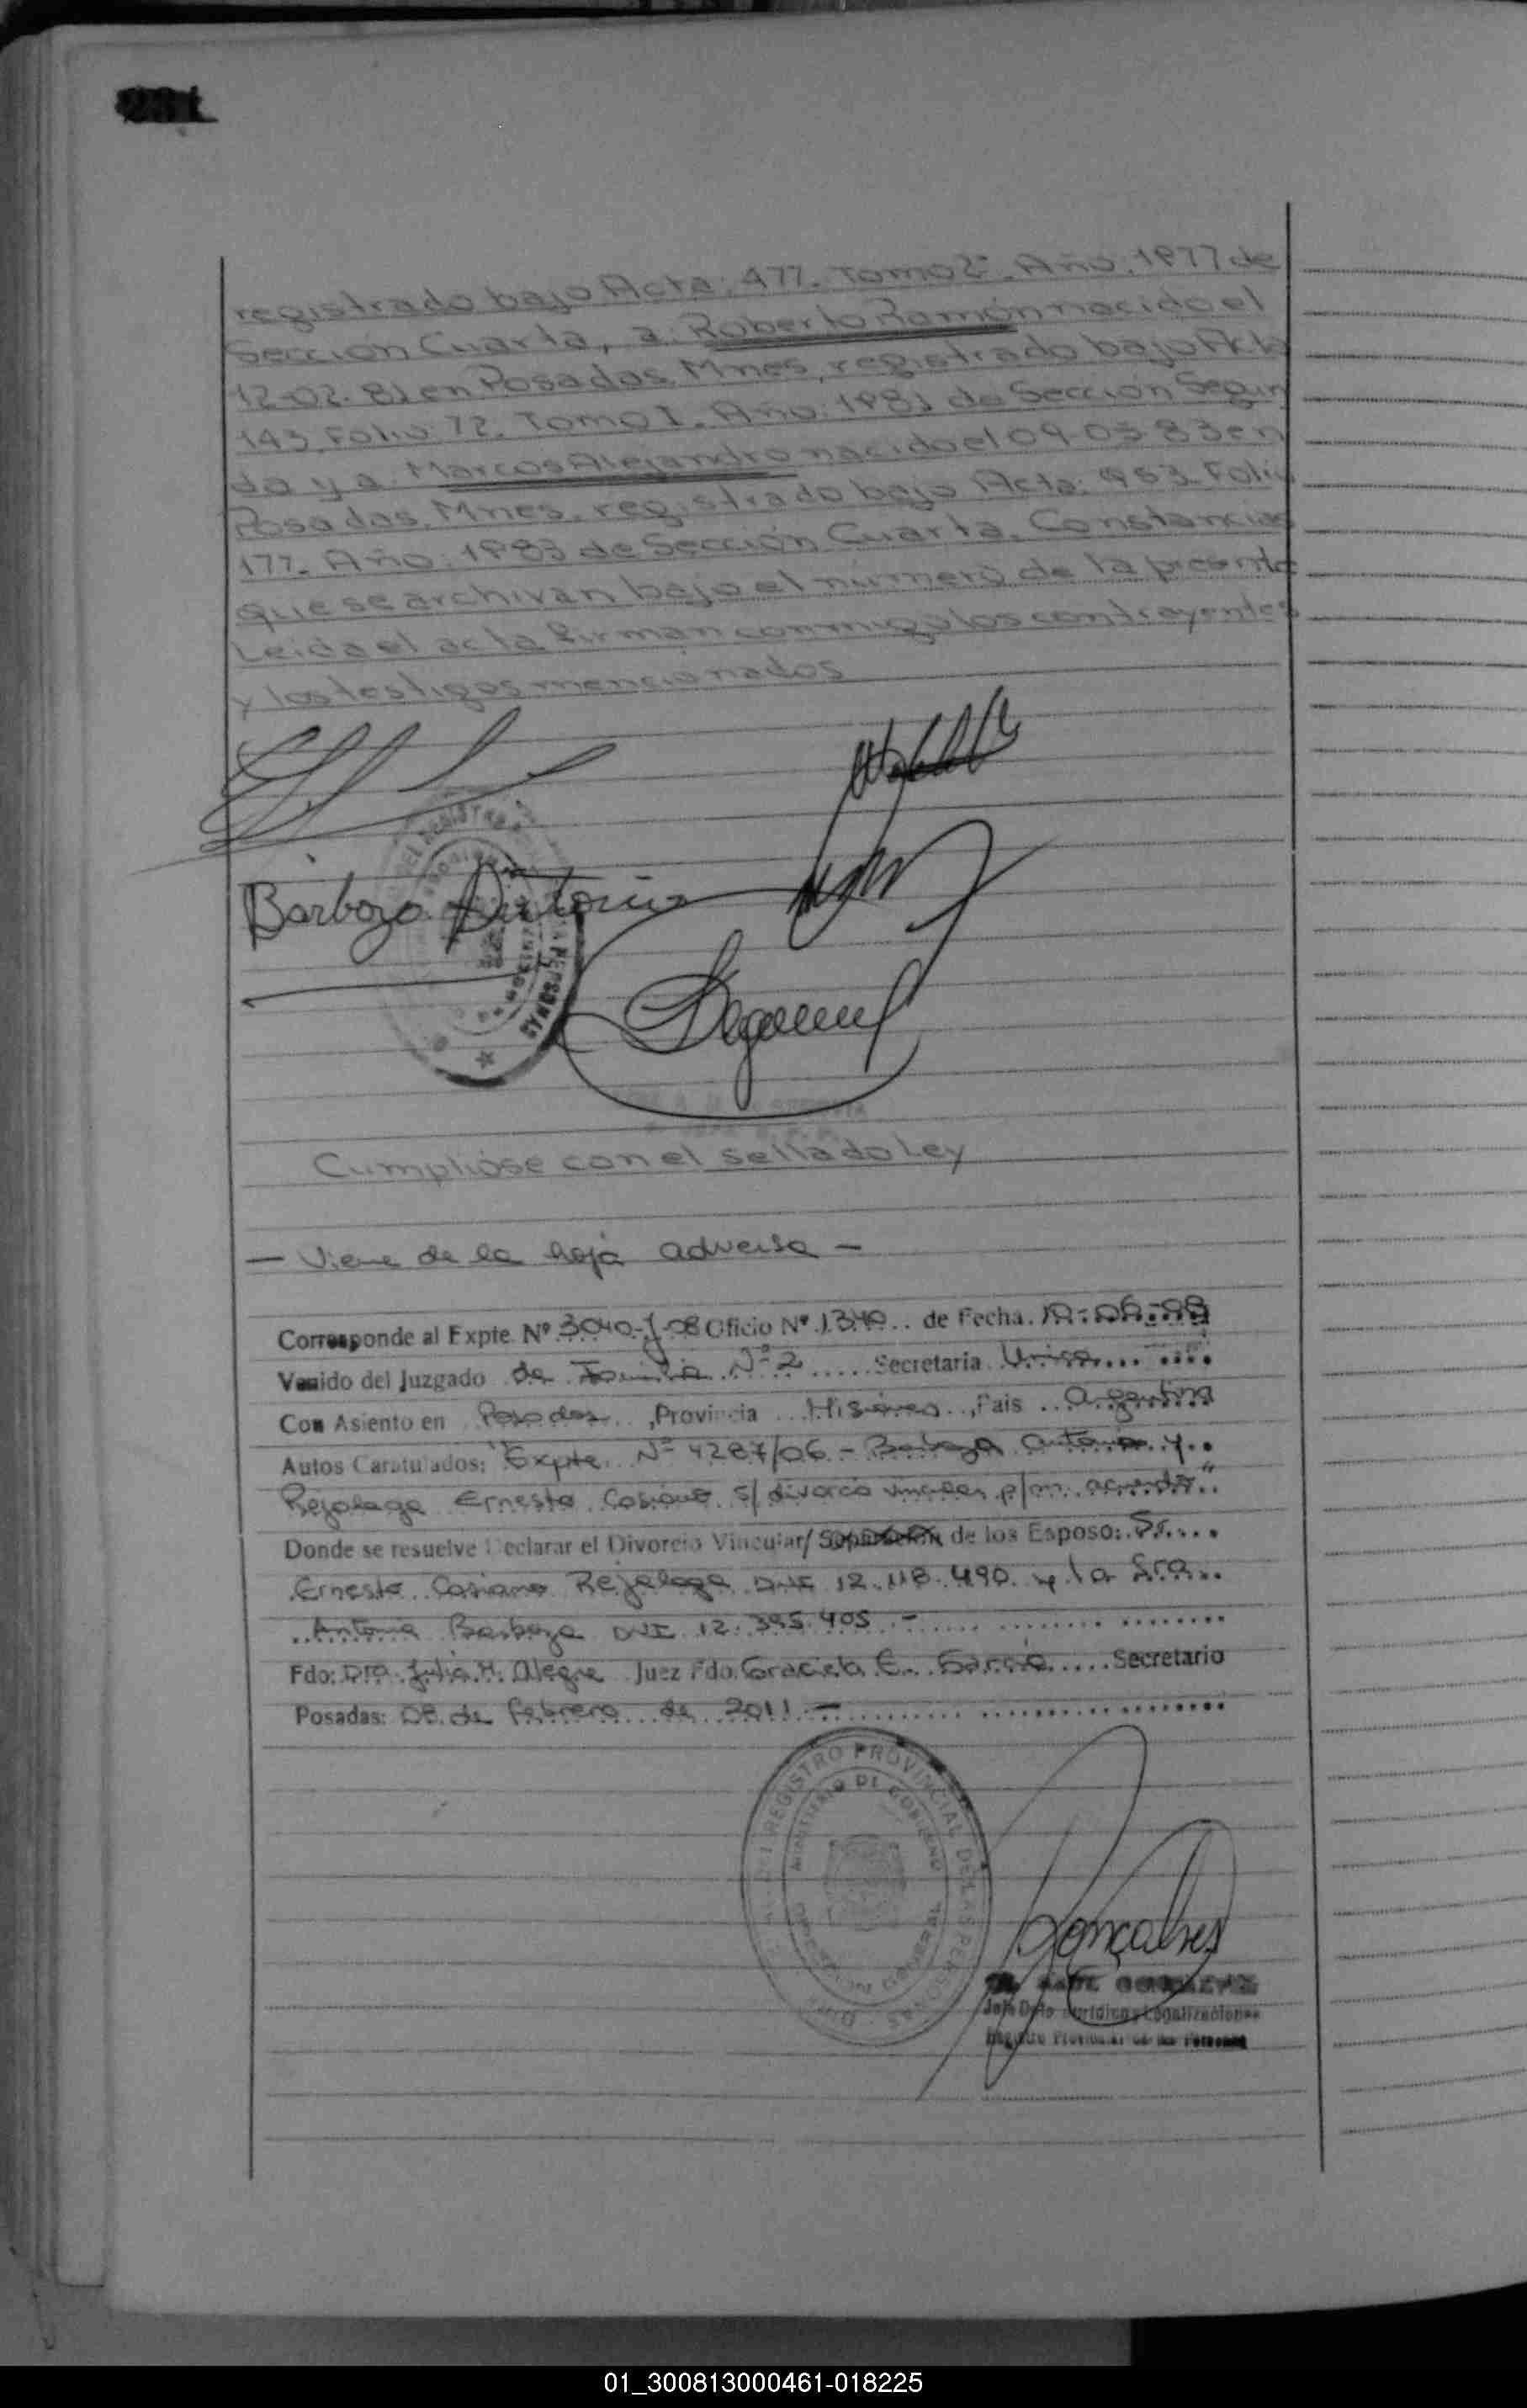 231
registrado bajo Acta: 477. Tomo 2º. Año. 1977 de
Sección Cuarta, a: Roberto Ramón nacido el
12-02-81 en Posadas, Mnes, registrado bajo Acta
143, Folio: 72. Tomo I. Año: 1981 de Sección Segun
da y a: Marcos Alejandro nacido el 09-03-83 en
Posadas, Mnes. registrado bajo Acta: 953 Folio
177. Año: 1983 de Sección Cuarta. Constancias
que se archivan bajo el número de la presente
Leida el acta firman conmigo los contrayentes
y los testigos mencionados
Barbozo Antonia
Cumplióse con el sellado Ley
— Viene de la hoja adversa —
Corresponde al Expte. Nº 3040-J-08 Oficio Nº 1340 de Fecha. 10-06-08
Venido del Juzgado de Familia Nº 2 Secretaria Unica
Con Asiento en Posadas, Provincia Misiones, Pais Argentina
Autos Caratulados: "Expte. Nº 4287/06 - Barboza Antonia y
Rejalaga Ernesto Casiano s/ divorcio vincular p/m. acuerdo"
Donde se resuelve Declarar el Divorcio Vincular/ Separación de los Esposo: Sr.
Ernesto Casiano Rejalaga DNI 12.118.490 y la Sra.
Antonia Barboza DNI 12.395.405 -
Fdo: Dra. Julia H. Alegre Juez Fdo. Graciela E. García Secretario
Posadas: 08 de febrero de 2011 -
REGISTRO PROVINCIAL DE LAS PERSONAS
MINISTERIO DE GOBIERNO
Gonçalves
Jefe Dpto Juridico y Legalizaciones
Registro Provincial de las Personas
01_300813000461-018225